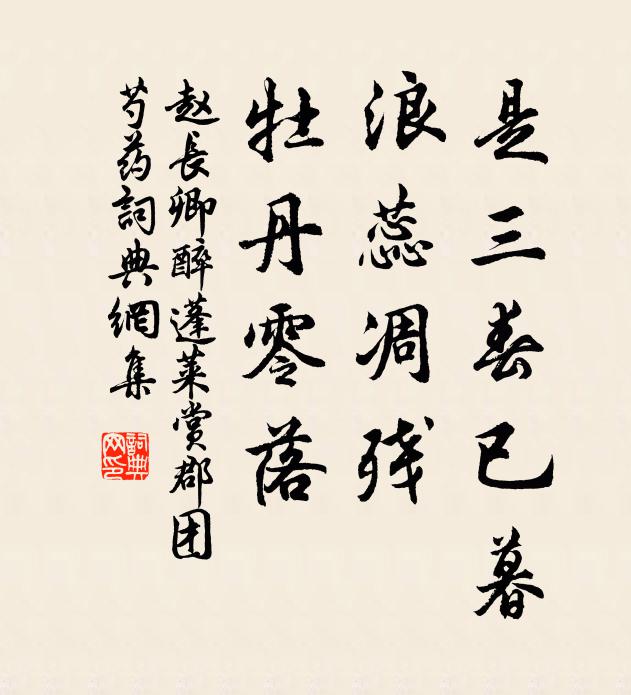 是三春已暮
浪蕊凋残
牡丹零落
赵長卿醉蓬莱赏郡团
芍药詞典網集
詞典网